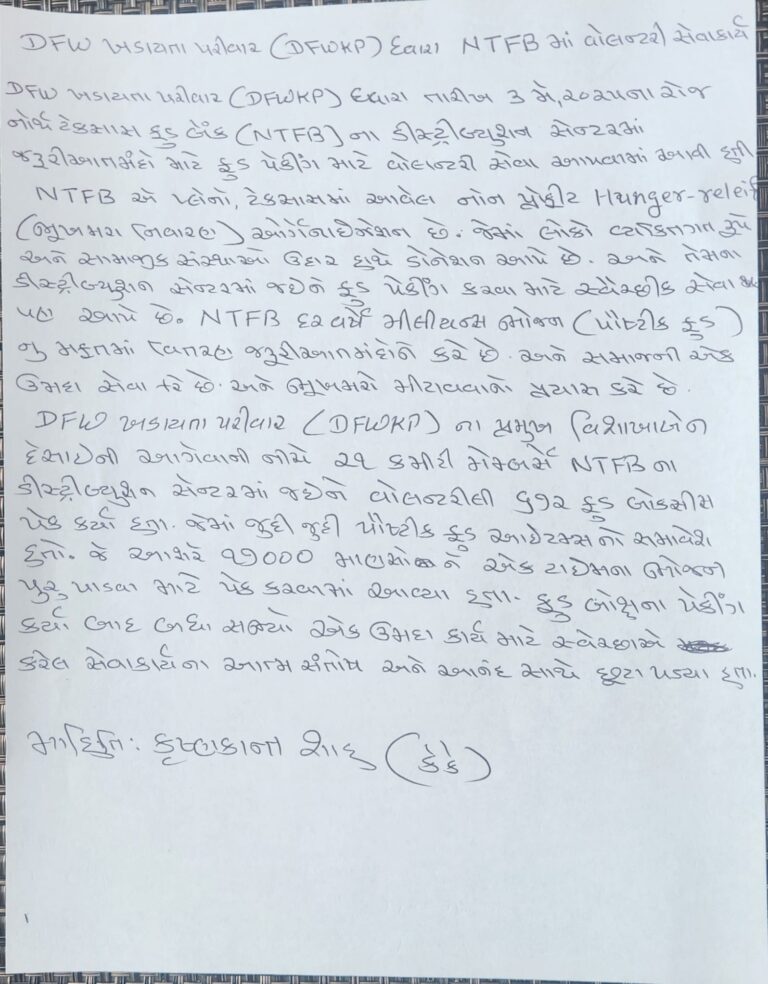 DFW ખડાયતા પરીવાર (DFWKP) દ્વારા NTFB માં વોલન્ટરી સેવાકાર્ય
DFW ખડાયતા પરીવાર (DFWKP) દ્વારા તારીખ ૩ મે, ૨૦૨૫ના રોજ
નોર્થ ટેક્સાસ ફુડ બેંક (NTFB) ના ડીસ્ટ્રીબ્યુશન સેન્ટરમાં
જરૂરીઆતમંદો માટે ફુડ પેકીંગ માટે વોલન્ટરી સેવા આપવામાં આવી હતી
NTFB એ પ્લેનો, ટેક્સાસમાં આવેલ નોન પ્રોફીટ Hunger-releif
(ભુખમરા નિવારણ) ઓર્ગેનાઈઝેશન છે. જેમાં લોકો વ્યક્તિગત રૂપે
અને સામાજીક સંસ્થાઓ ઉદાર હાથે ડોનેશન આપે છે. અને તેમના
ડીસ્ટ્રીબ્યુશન સેન્ટરમાં જઈને ફુડ પેકીંગ કરવા માટે સ્વૈચ્છીક સેવા
પણ આપે છે. NTFB દર વર્ષે મીલીયન્સ ભોજન (પૌષ્ટીક ફુડ)
નુ મફતમાં વિતરણ જરૂરીઆતમંદોને કરે છે. અને સમાજની એક
ઉમદા સેવા કરે છે. અને ભુખમરો મીટાવવાનો પ્રયાસ કરે છે.
DFW ખડાયતા પરીવાર (DFWKP) ના પ્રમુખ વિશાખાબેન
દેસાઈની આગેવાની નીચે ૨૧ કમીટી મેમ્બર્સે NTFB ના
ડીસ્ટ્રીબ્યુશન સેન્ટરમાં જઈને વોલન્ટરીલી ૬૭૨ ફુડ બોકસીસ
પેક કર્યા હતા. જેમાં જુદી જુદી પૌષ્ટીક ફુડ આઈટેમ્સનો સમાવેશ
હતો. જે આશરે ૧૭૦૦૦ માણસો ને એક ટાઈમના ભોજન
પુરુ પાડવા માટે પેક કરવામાં આવ્યા હતા. ફુડ બોક્ષના પેકીંગ
કર્યા બાદ બધા સભ્યો એક ઉમદા કાર્ય માટે સ્વેચ્છાએ
કરેલ સેવાકાર્યના આત્મ સંતોષ અને આનંદ સાથે છૂટા પડ્યા હતા.
માહિતિ: કૃષ્ણકાન્ત શાહ (કેકે)